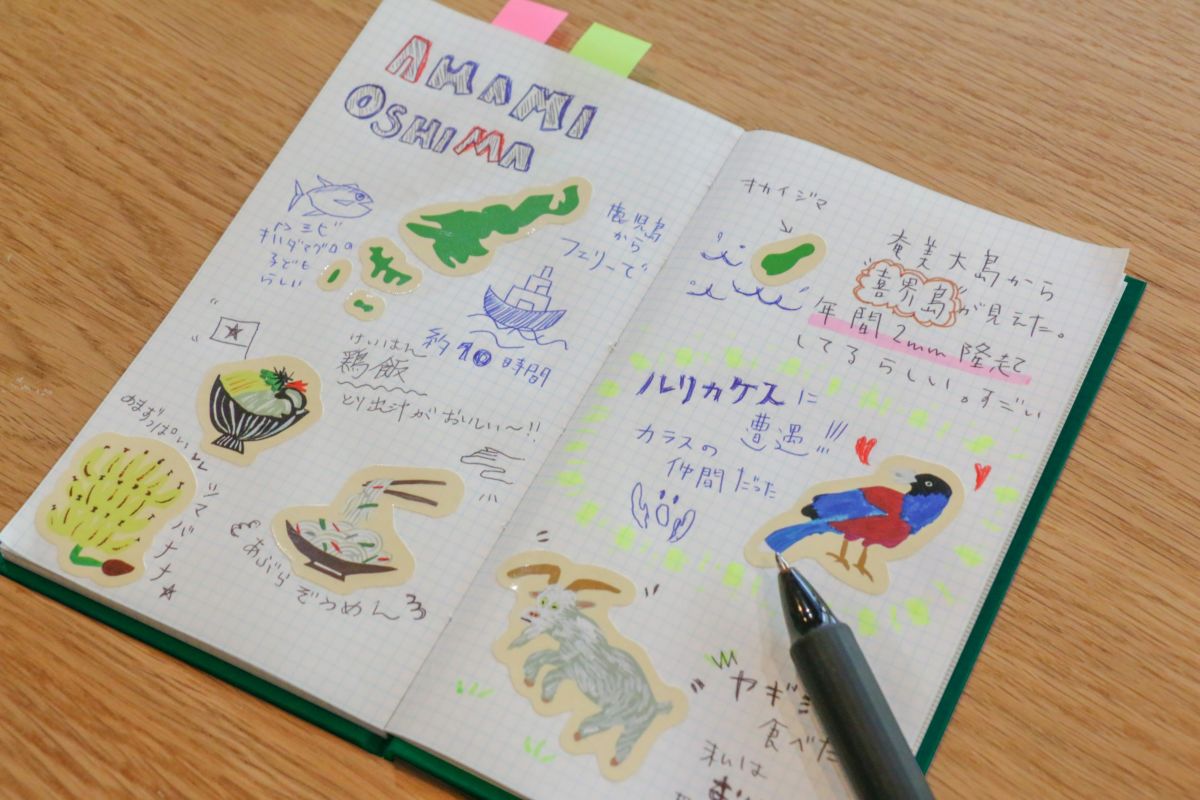 AMAMI
OSHIMA
キハダマグロの
子ども
らしい
鹿児島
から
フェリーで
約10時間
けいはん
鶏飯
とり出汁がおいしい〜!!
あまずっぱい
シマバナナ☆
あぶらぞうめん
キカイジマ
奄美大島から
"喜界島"が見えた。
年間2mm隆起
してるらしい。すごい
ルリカケスに
遭遇!!!
カラスの
仲間だった
ヤギ
食べた
私は